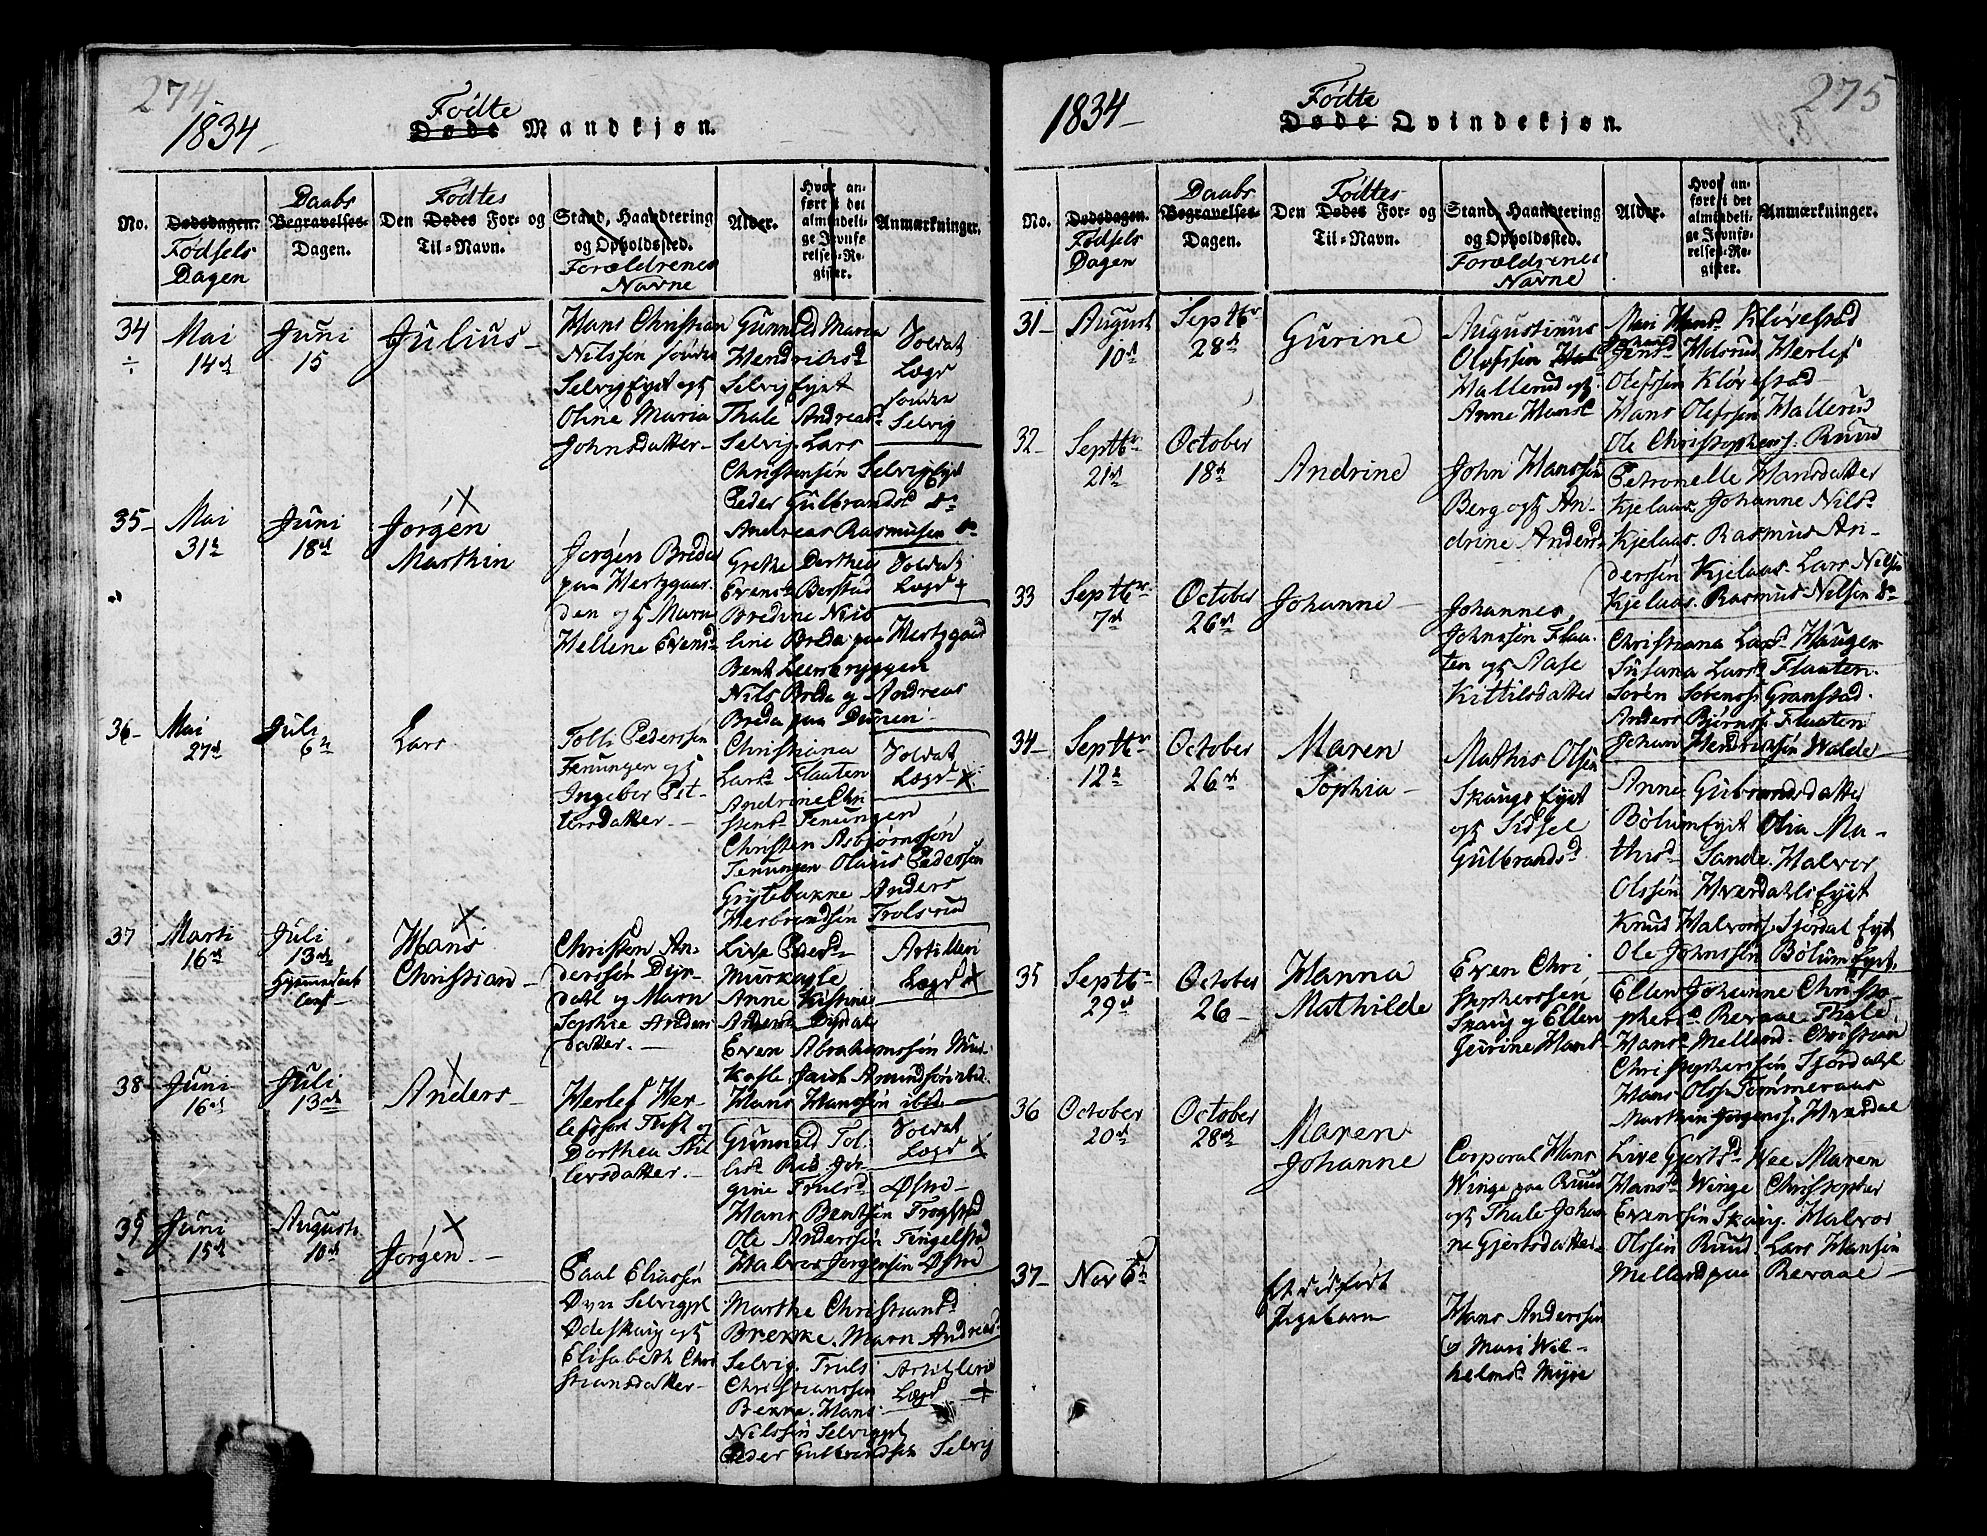 274
1834
Fødte
Døde Mandkjøn.
No.
Dødsdagen.
Fødsels
Dagen
Daabs
Begravelses-
Dagen.
Fødtes
Den Dødes For- og
Til-Navn.
Stand, Haandtering
og Opholdssted.
Forældrenes
Navne
Alder.
Hvor an-
ført i det
almindeli-
ge Jevnfø-
relses-Re-
gister.
Anmærkninger.
34
÷
Mai
14d
Juni
15
Julius
Hans Christian
Nilssøn søndre
Selvig Eyet og
Oline Maria
Johnsdatter
Gunnild Maria
Hendrichsd
Selvig Eyet
Thale Andreasd
Selvig Lars
Christensøn Selvig Eyet
Peder Gulbrandsd do
Andreas Rasmusen do
Soldat
Lægd
søndre
Selvig
35
Mai
31
Juni
18d
Jørgen
Marthin
Jørgen Breda
paa Hertygaar-
den og Maria
Hellene Evensd
Grethe Dorthea
Evensd Berstad
Bredine Nico
line Breda paa Hertygaard
Bent Leersbryggen
Nils Breda og Andreas
Breda paa Duren
Soldat
Lægd
36
Mai
27d
Juli
6
Lars
Tollef Pederssøn
Tenungen og
Ingeber Pet-
tersdatter
Christiana
Larsd Flaaten
Andrine Chri
stensd Tenungen
Christen Asbjørnssøn
Tenungen Olaus Pederssen
Grytebakke Anders
Herbrandsøn Trolsrud
Soldat
Lægd
37
Marti
16d
Juli
13d
Hjemmedøbt
Hans
Christian
Christen An-
derssøn Dyr-
dahl og Maren
Sophie Anders
datter
Live Pedersd
Murkasle
Anne Kistine
Andersd Dyrdal
Even Abrahamssøn Mur-
kasle Jacob Amundsøn ibid.
Hans Hanssøn ibid.
Artilleri
Lægd
38
Juni
16d
Juli
13d
Anders
Herlef Her-
lefssøn Tuft og
Dorthea Thi
lersdatter
Gunnild Tol-
lefsd Røed Jør-
gine Trulsd Østne
Hans Bentsøn Trogstad
Ole Anderssøn Tingelstad
Halvor Jørgensøn Østne
Soldat
Lægd
39
Juni
15d
Augusti
10d
Jørgen
Paal Eliassøn
Øvre Selvigpl
Ødeskaug og
Elisabeth Chri
stiansdatter
Marthe Christiansd
Brekke. Maren Andreas-
Selvig. Truls
Christianssøn
Bekke. Hans
Nilssøn Selvigpl
Peder Gulbrandsen Selvig
Artillerie
Lægd
275
1834
Fødte
Døde Qvindekjøn.
No.
Dødsdagen.
Fødsels
Dagen
Daabs
Begravelses-
Dagen.
Fødtes
Den Dødes For- og
Til-Navn.
Stand, Haandtering
og Opholdssted.
Forældrenes
Navne
Alder.
Hvor an-
ført i det
almindeli-
ge Jevnfø-
relses-Re-
gister.
Anmærkninger.
31
August
10d
Septbr
28d
Gurine
Augustinus
Olefssøn
Hallerud og
Anne Hansd
Mari Hansd Kløvestad
Jensd Helsrud Herlef
Olefssøn Kløvestad
Hans Olefssøn Hallerud
Ole Christophers. Ruud
32
Septbr
21d
October
18d
Andrine
John Hanssøn
Berg og An-
drine Andersd
Petronelle Hansdatter
Kjelaas Johanne Nilsd
Kjelaas. Rasmus An-
derssøn Kjelaas. Lars Nilsen
Kjelaas. Rasmus Nelsen do
33
Septbr
7d
October
26d
Johanne
Johannes
Johnssøn Flaa-
ten og Aase
Kittilsdatter
Christiana Larsd Haugen
Susana Larsd Flaaten
Søren Sørenss. Granstad.
Anders Bjørnss. Flaaten
Johan Hendriksøn Walde
34
Septbr
12
October
26d
Maren
Sophia
Mathis Olsen
Skaugs Eyet
og Sidsel
Gulbrandsd
Anne Gulbrandsdatter
Bølum Eyet Olia Ma-
thisd Sande. Halvor
Olssøn Hverdahls Eyet
Knud Halvorss. Sjørdal Eyet
Ole Johnssøn Bølum Eyet
35
Septb
29d
October
26
Hanna
Mathilde
Even Chri
stopherssøn
Skaug og Ellen
Jeirine Hansd
Ellen Johanne Christo
phersd Revaae Thale
Hansd Melland. Christian
Christopherssøn Sjørdahl
Hans Olss. Tommeraas
Marthin Jørgenss. Hverdal
36
October
20d
October
28d
Maren
Johanne
Corporal Hans
Winge paa Ruud
og Thale Johan
ne Gjertsdatter
Live Gjertsd Wee Maren
Hansd Winge Christopher
Evenssøn Skaug. Halvor
Olssøn Ruud. Lars Hansøn
Melland paa Revaae
37
Novb
et dødfødt
Pigebarn
Hans Anderssøn
og Mari Wil-
helmsd Myre